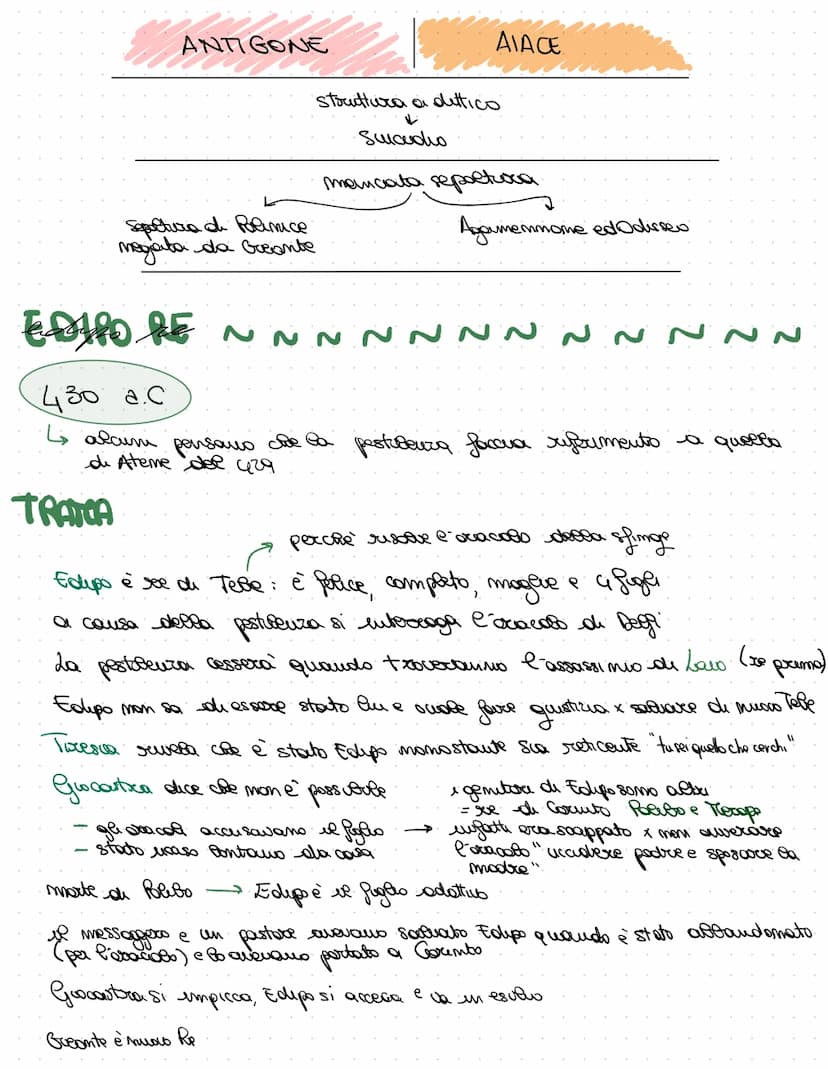 ANTIGONE AIACE
struttura a dittico
↓
Suicidio
mancata sepoltura
sepoltura di Polinice Agamennone ed Odisseo
negata da Creonte
EDIPO RE ~ ~ ~ ~ ~ ~ ~ ~ ~ ~ ~ ~ ~
430 a.C
↳ alcuni pensano che la pestilenza faccia riferimento a quella
di Atene del 429
TRAMA
perchè risolve l'oracolo della sfinge
Edipo è re di Tebe: è felice, completo, moglie e 4 figli
a causa della pestilenza si interroga l'oracolo di Delfi
La pestilenza cesserà quando troveranno l'assassinio di Laio (re prima)
Edipo non sa di essere stato lui e vuole fare giustizia x salvare di nuovo Tebe
Tiresia rivela che è stato Edipo nonostante sia reticente "tu sei quello che cerchi"
Giocastra dice che non è possibile
i genitori di Edipo sono altri
= re di Corinto Polibo e Merope
- gli oracoli accusavano il figlio → infatti era scappato x non avverare
- stato ucciso lontano da casa l'oracolo "uccidere padre e sposare la
madre"
morte di Polibo → Edipo è il figlio adottivo
il messaggero e un pastore avevano salvato Edipo quando è stato abbandonato
(per l'oracolo) e lo avevano portato a Corinto
Giocastra si impicca, Edipo si acceca e va in esilio
Creonte è nuovo Re